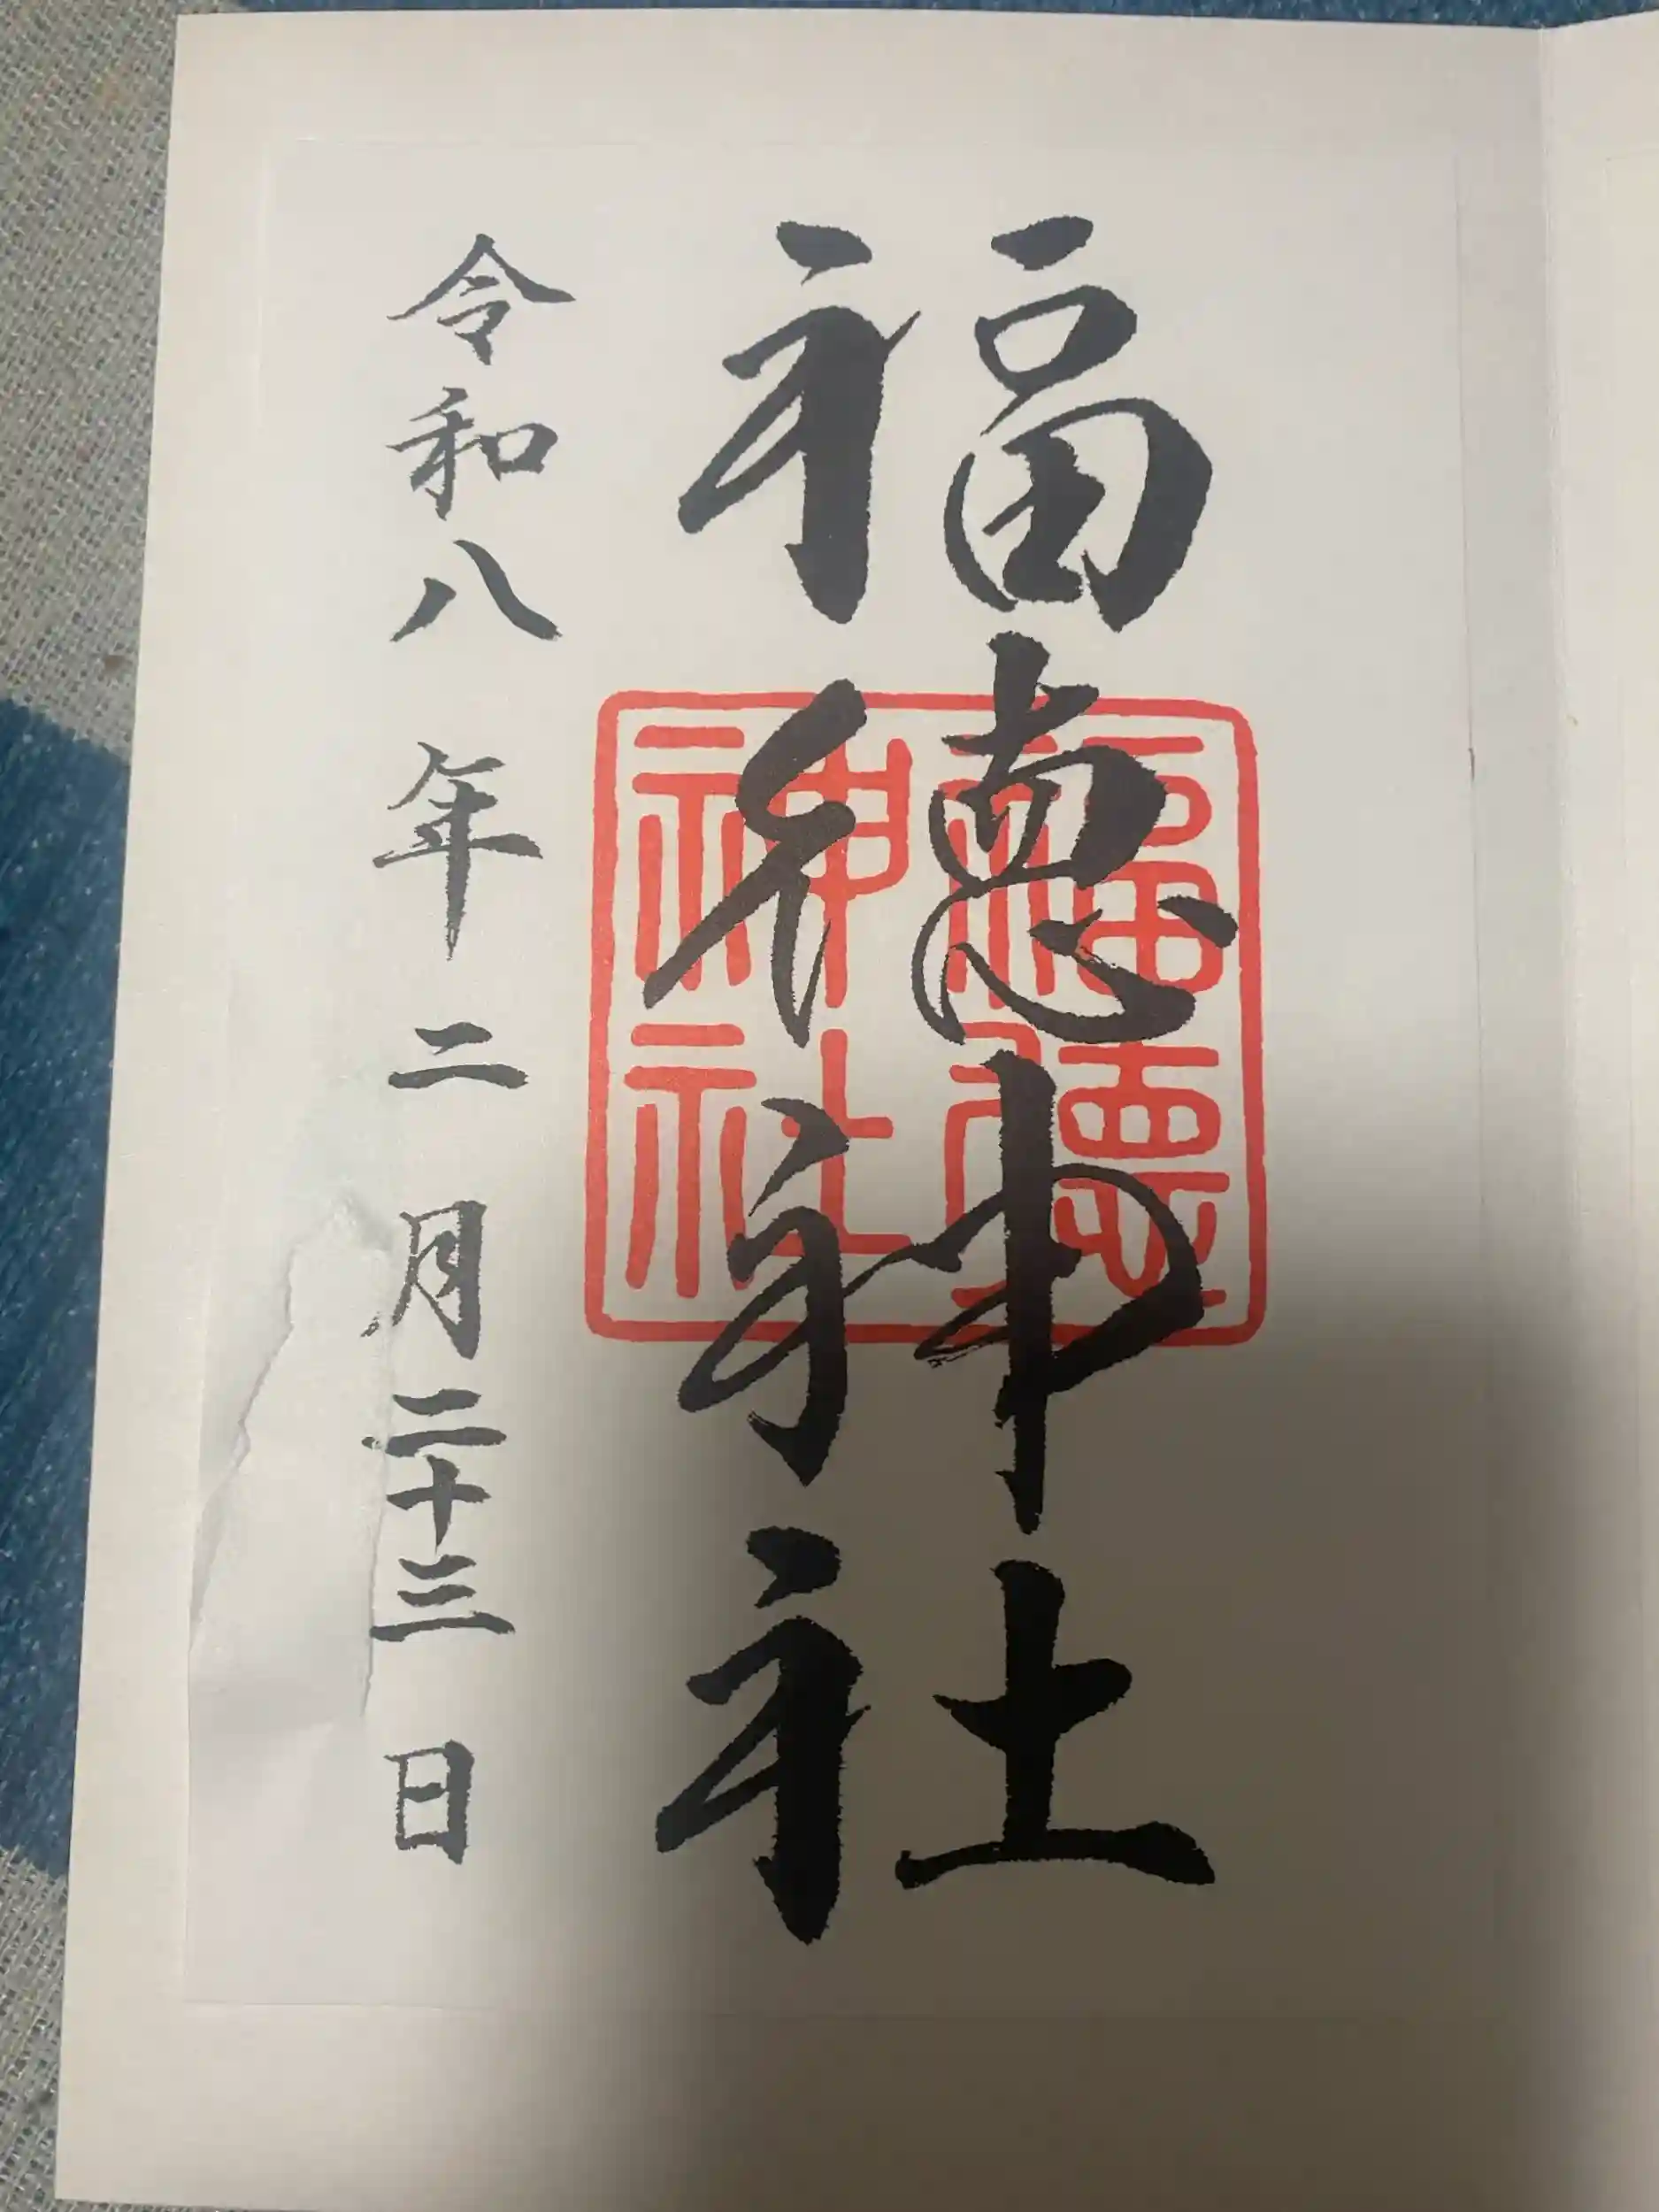 福徳神社
福徳
神社
令和八年二月二十三日